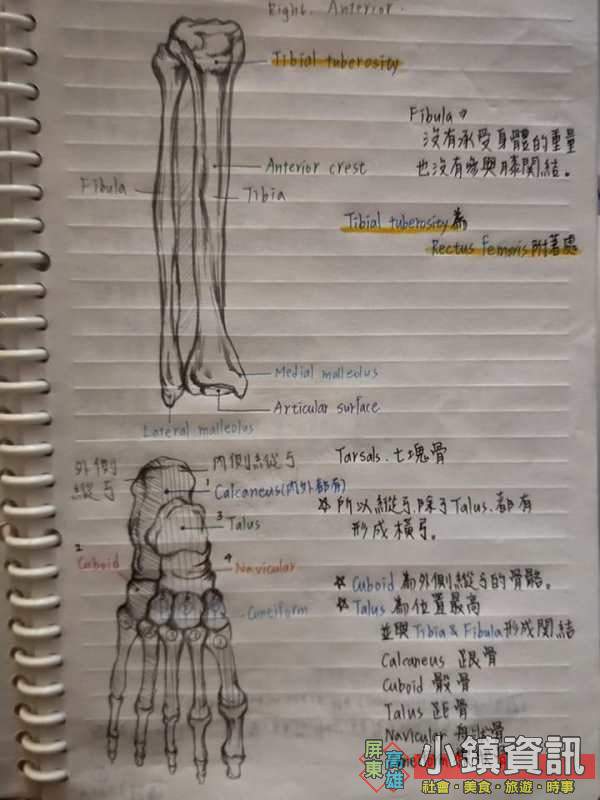 Right. Anterior.
Tibial tuberosity
Fibula
沒有承受身體的重量
也沒有參與膝關結。
Anterior crest
Fibula
Tibia
Tibial tuberosity為
Rectus femoris附著處
Medial malleolus
Articular surface
Lateral malleolus
外側
縱弓
內側縱弓
Tarsals.七塊骨
1
Calcaneus(內外都有)
☆所以縱弓.除了Talus.都有
形成橫弓。
3
Talus
2
Cuboid
4
Navicular
☆ Cuboid 為外側縱弓的骨骼。
☆ Talus 為位置最高
Cuneiform
並與Tibia & Fibula形成關結
Calcaneus 跟骨
Cuboid 骰骨
Talus 距骨
Navicular 舟狀骨
屏東
高雄
小鎮資訊
社會・美食・旅遊・時事